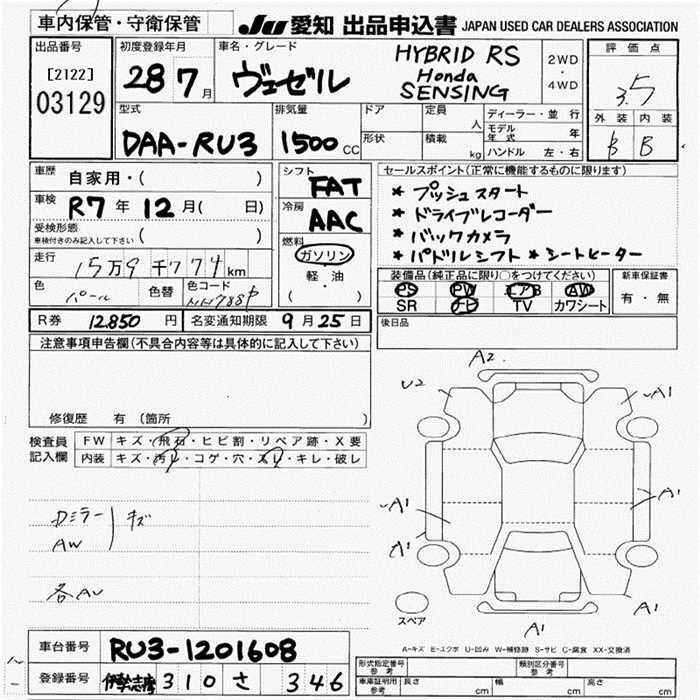 車内保管・守衛保管
JU 愛知 出品申込書 JAPAN USED CAR DEALERS ASSOCIATION
出品番号
[2122]
03129
初度登録年月
28 7月
車名・グレード
ヴェゼル
HYBRID RS
Honda
SENSING
2WD
・
4WD
評価点
3.5
外装 内装
B B
型式
DAA-RU3
排気量
1500 CC
ドア
形状
定員 人
積載 kg
ディーラー・並行
モデル年式 年
ハンドル 左・右
車歴 自家用・( )
車検 R7年 12月( 日)
受検形態
車検付きのみ記入して下さい ( )
走行 15万9千774km
色 パール 色替 色コード
シフト
FAT
冷房
AAC
燃料
ガソリン
・
軽・油
( )
セールスポイント(正常に機能するものに限ります)
* プッシュスタート
* ドライブレコーダー
* バックカメラ
* パドルシフト * シートヒーター
装備品(純正品に限り○をつけてください)
PS PW エアB AW
SR ナビ TV カワシート
新車保証書
有・無
R券 12,850 円 名変通知期限 9月25日
後日品
注意事項申告欄(不具合内容等は具体的に記入して下さい)
修復歴 有(箇所
検査員
記入欄
FW キズ・飛石・ヒビ割・リペア跡・X要
内装 キズ・汚レ・コゲ・穴・スレ・キレ・破レ
Dミラー
AW
キズ
各AU
A2
U2
A1
A1
A1
A1
A1
A1
スペア
A-キズ E-エクボ U-凹み W-補修跡 S-サビ C-腐食 XX-交換済
車台番号 RU3-1201608
登録番号 伊勢志摩 310 さ 346
形式指定番号
参考
類別区分番号
参考
車庫証明用
参考
長さ cm 幅 cm 高さ cm